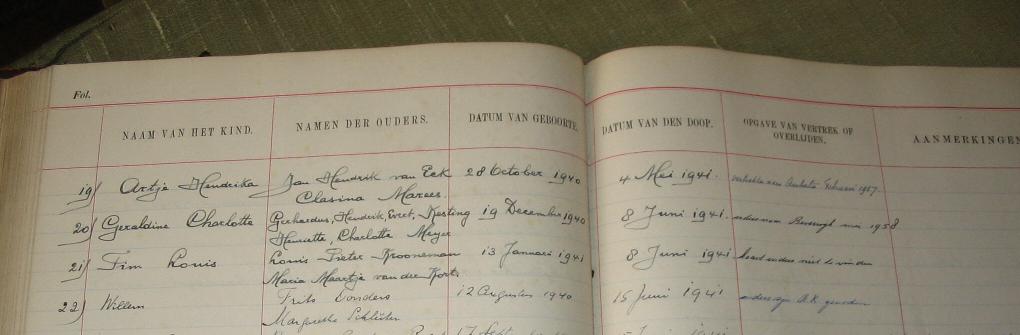 Fol.
NAAM VAN HET KIND. NAMEN DER OUDERS. DATUM VAN GEBOORTE. DATUM VAN DEN DOOP. OPGAVE VAN VERTREK OF OVERLIJDEN. AANMERKINGEN
19/ Artje Hendrika Jan Hendrik van Eek 28 October 1940 4 Mei 1941. 1957.
Clasina Marees
20/ Geraldine Charlotte Gerhardus, Hendrik, Evert, Kesting 19 December 1940 8 Juni 1941. mei 1958
Henriette, Charlotte Meyer
21/ Pim Louis Louis Pieter Krooneman 13 Januari 1941 8 Juni 1941 niet te vinden
Maria Maartje van der Korst
22) Willem Frits Donders 12 Augustus 1940. 15 Juni 1941
Margaretha Schlüter